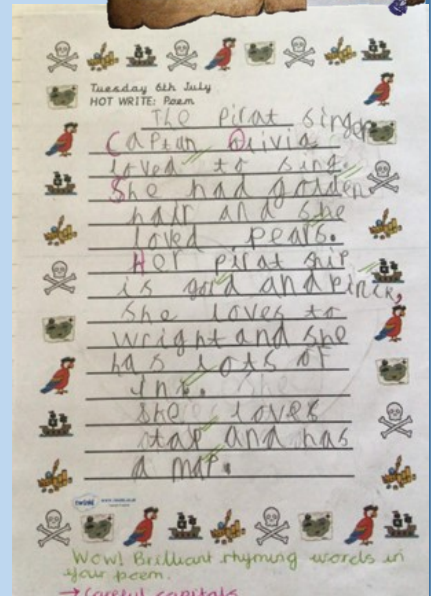 Tuesday 6th July
HOT WRITE: Poem
The pirat singer
Captan Olivia
loved to sing.
She had golden
hair and she
loved pears.
Her pirat ship
is gold and pinck,
she loves to
wright and she
has lots of
ink. she
she loves
stap and has
a map.
twinkl
Wow! Brilliant rhyming words in
your poem.
→ Careful capitals